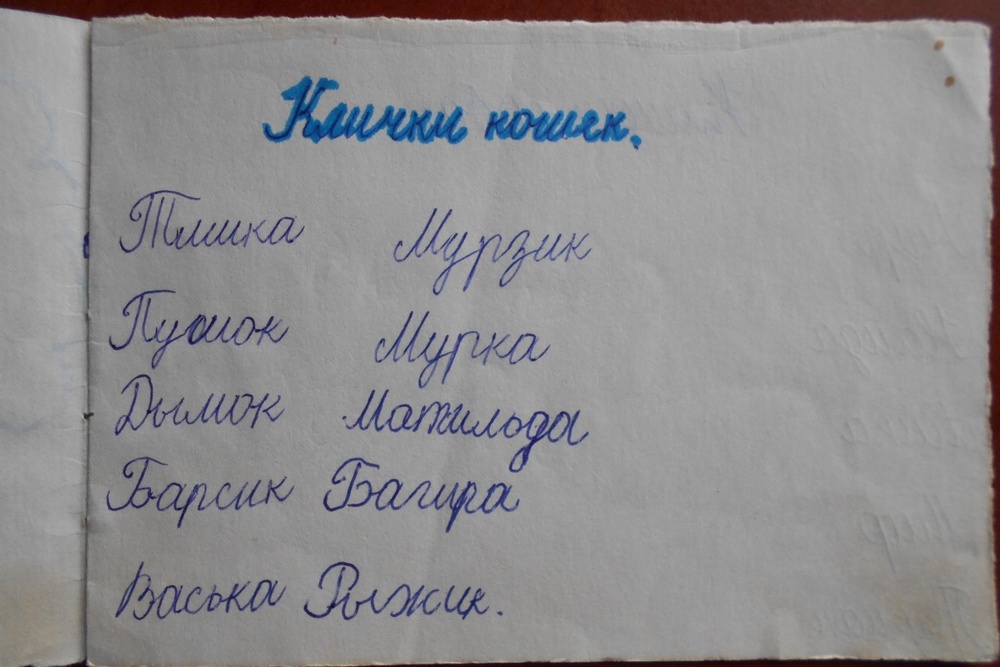 Клички кошек.
Тлшка Мурзик
Пушок Мурка
Дымок Матильда
Барсик Багира
Васька Рыжик.